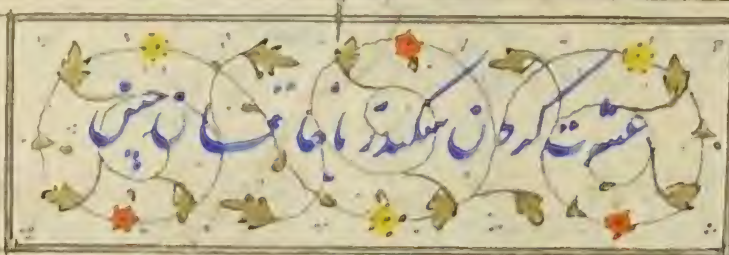 عشرت کردن سکندر با خاقان چین